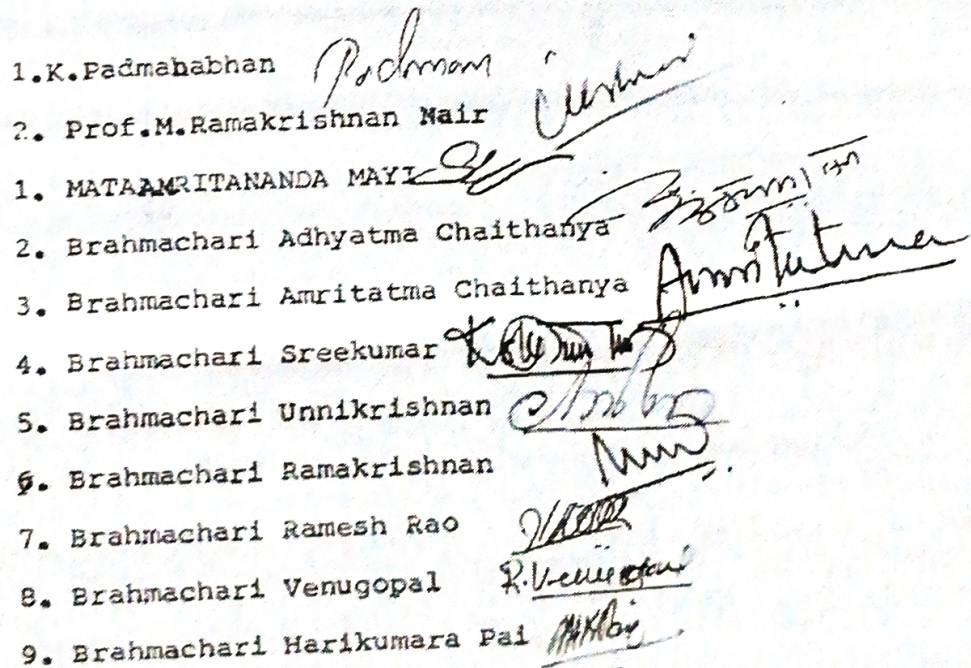 1.K.Padmahabhan Padmam
2. Prof.M.Ramakrishnan Nair
1. MATAAMRITANANDA MAYI
2. Brahmachari Adhyatma Chaithanya
3. Brahmachari Amritatma Chaithanya Amritatma
4. Brahmachari Sreekumar
5. Brahmachari Unnikrishnan
6. Brahmachari Ramakrishnan
7. Brahmachari Ramesh Rao
8. Brahmachari Venugopal
9. Brahmachari Harikumara Pai